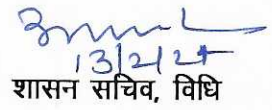 13/2/24
शासन सचिव, विधि